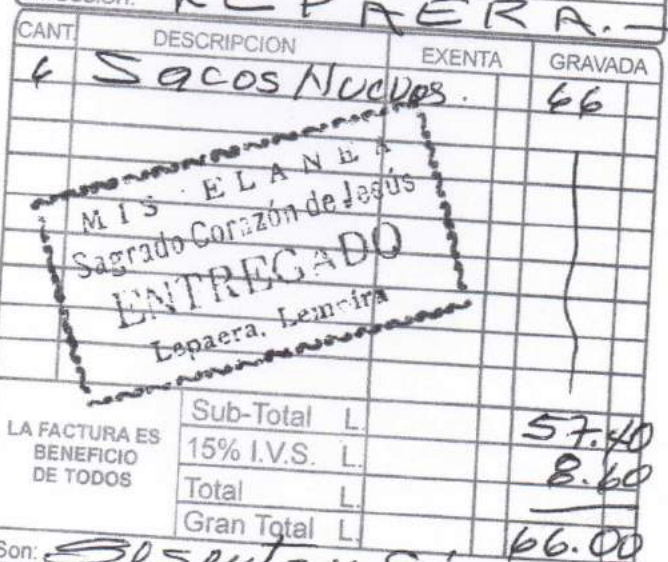 LEPAERA.-
CANT. DESCRIPCION EXENTA GRAVADA
6 Sacos Nuevos. 66
MIS ELANEA
Sagrado Corazón de Jesús
ENTREGADO
Lepaera, Lempira
LA FACTURA ES
BENEFICIO
DE TODOS
Sub-Total L. 57.40
15% I.V.S. L. 8.60
Total L.
Gran Total L. 66.00
Son: